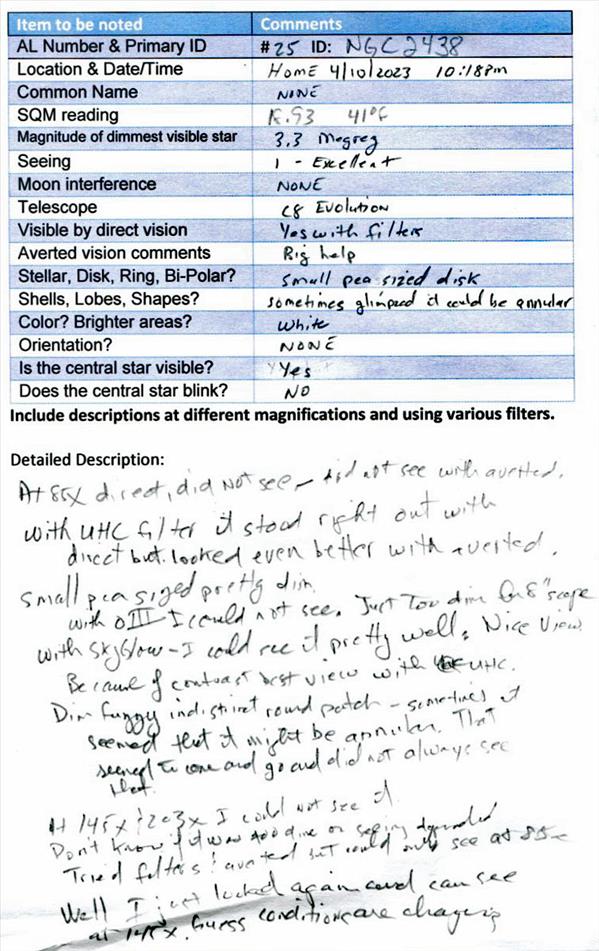 Item to be noted Comments
AL Number & Primary ID #25 ID: NGC2438
Location & Date/Time HOME 4/10/2023 10:18pm
Common Name NONE
SQM reading .93 41°F
Magnitude of dimmest visible star 3.3 Megrez
Seeing 1 - Excellent
Moon interference NONE
Telescope C8 Evolution
Visible by direct vision Yes with filters
Averted vision comments Big help
Stellar, Disk, Ring, Bi-Polar? small pea sized disk
Shells, Lobes, Shapes? sometimes glimpsed it could be annular
Color? Brighter areas? White
Orientation? NONE
Is the central star visible? Yes
Does the central star blink? NO
Include descriptions at different magnifications and using various filters.
Detailed Description:
At 85X direct, did not see - did not see with averted.
With UHC filter it stood right out with
direct but looked even better with averted.
small pea sized pretty dim
with OIII I could not see. Just Too dim for 8" scope
with SkyGlow - I could see it pretty well. Nice View
Because of contrast best view with UHC.
Dim fuzzy indistinct round patch - sometimes it
seemed that it might be annular. That
seemed to come and go and did not always see
that.
At 145x & 203x I could not see it
Don't know if it was too dim or seeing degraded
Tried filters & averted but could only see at 85x
Well I just looked again and can see
at 145x. Guess conditions are changing